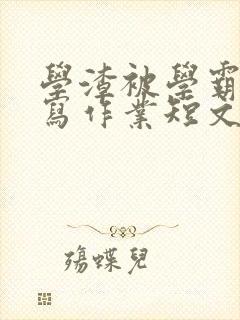 學渣被學霸
寫作業短文
殤蝶兒